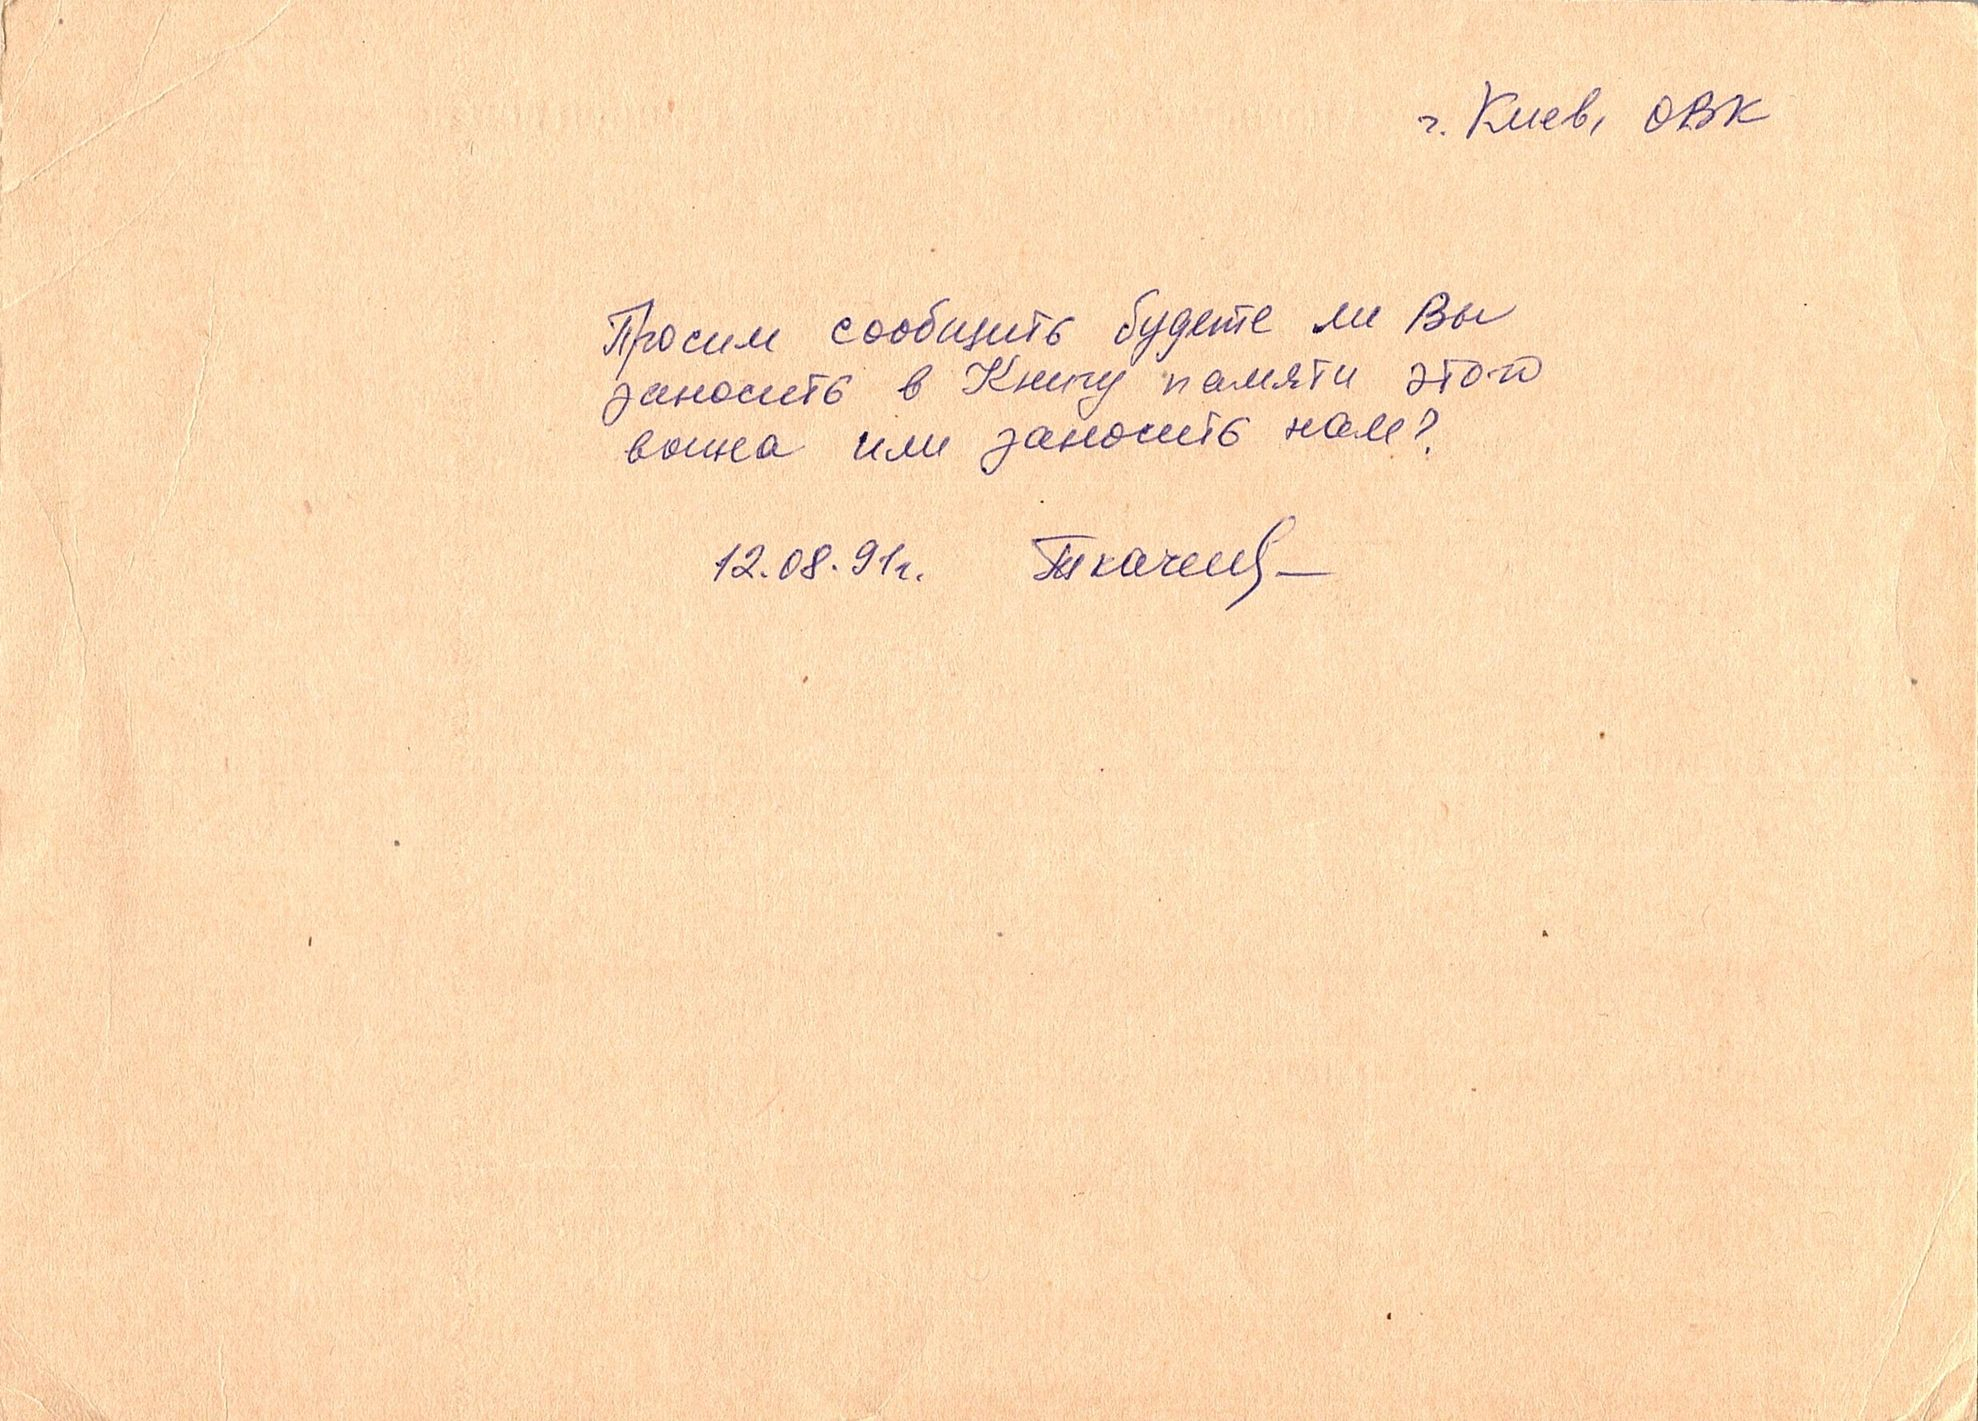 г. Киев, ОВК
Просим сообщить будете ли Вы
заносить в Книгу памяти этого
воина или заносить нам?
12.08.91г.